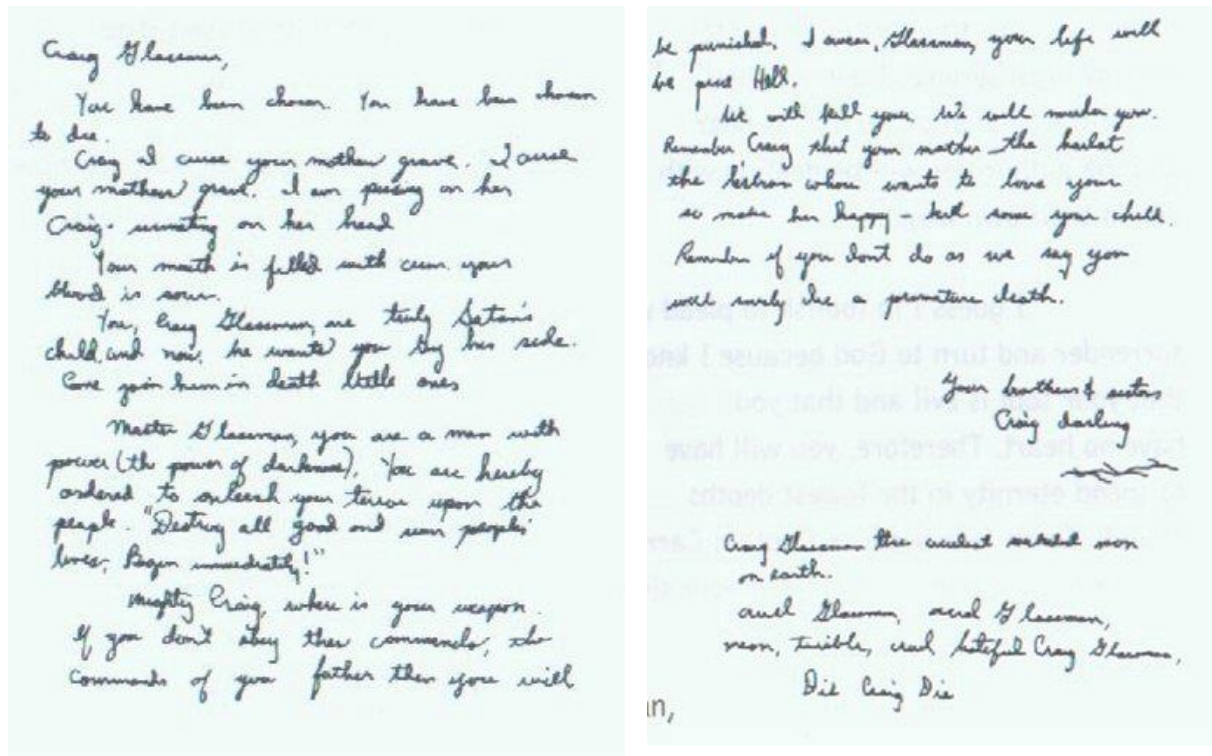 Craig Glassman,
You have been chosen. You have been chosen
to die.
Craig I curse your mother grave. I curse
your mothers grave. I am pissing on her
Craig - urinating on her head
Your mouth is filled with cum your
blood is sour.
You, Craig Glassman, are truly Satan's
child, and now he wants you by his side.
Come join him in death little ones
Master Glassman, you are a man with
power (the power of darkness). You are hereby
ordered to unleash your terror upon the
people. "Destroy all good and ruin peoples'
lives, Begin immediately!"
Mighty Craig, where is your weapon.
If you don't obey these commands, the
commands of your father then you will
be punished. I swear, Glassman, your life will
be pure Hell.
We will kill you. We will murder you.
Remember Craig that your mother the harlot
the lesbian whore wants to love your
so make her happy - kill some your child.
Remember if you don't do as we say you
will surely die a premature death.
Your brothers & sisters
Craig darling
Craig Glassman the cruelest man
on earth.
cruel Glassman, cruel Glassman,
mean, terrible, cruel hateful Craig Glassman,
Die Craig Die
an,